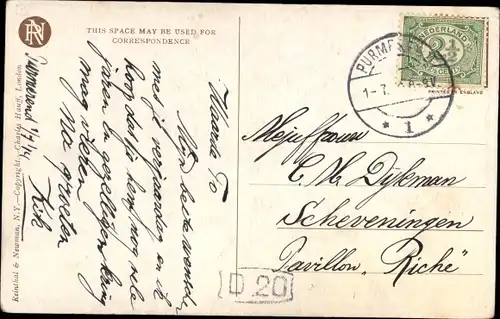 RN
THIS SPACE MAY BE USED FOR
CORRESPONDENCE
Purmerend 1/7/14
Waarde To
Mijn beste wensch
met je verjaardag en ik
hoop dat je hem nog vele
jaren in gezelligen kring
mag vieren
Na groeten
Reinthal & Newman, N.Y.—Copyright.—Charles Hauff, London.
NEDERLAND
2½
CENT
PRINTED IN ENGLAND
PURMEREND
1-7
* 1 *
Mejuffrouw
C. M. Dijkman
Scheveningen
Pavillon "Riche"
D 20